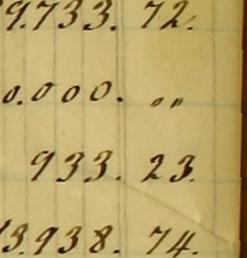 9.733. 72.
0.000. „
933. 23.
13.938. 74.